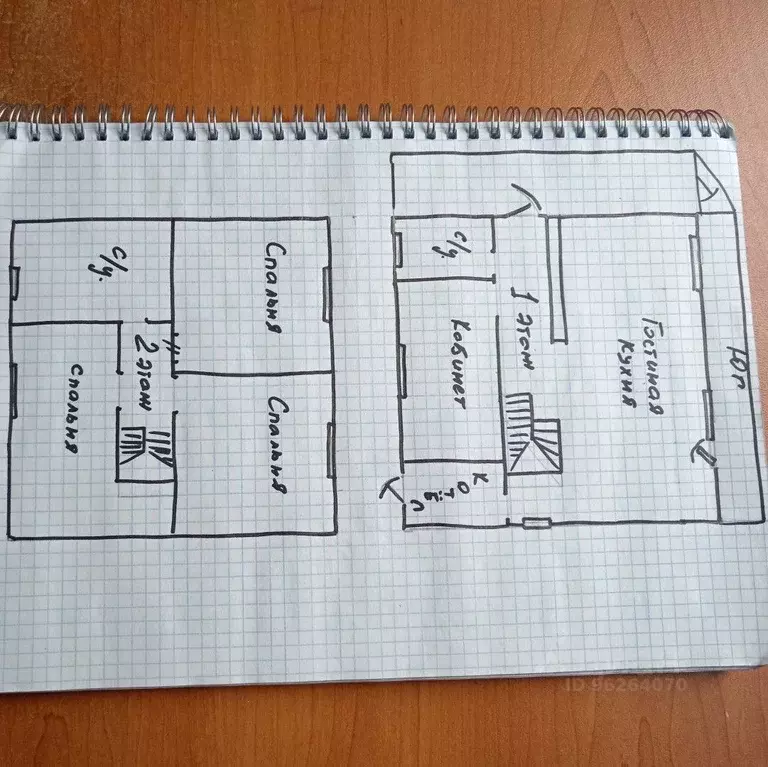 с/у.
Спальня
2 этаж
спальня
Спальня
с/у.
1 этаж
Гостиная
кухня
Кабинет
Котёл
Юг
ID 96264070